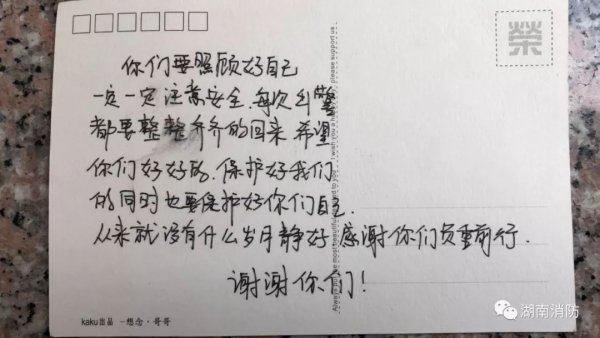 榮
你们要照顾好自己
一定一定注意安全,每次出警
都要整整齐齐的回来 希望
你们好好的,保护好我们
的同时也要保护好你们自己.
从来就没有什么岁月静好 感谢你们负重前行.
谢谢你们!
please support us
kaku出品 一想念·哥哥
湖南消防